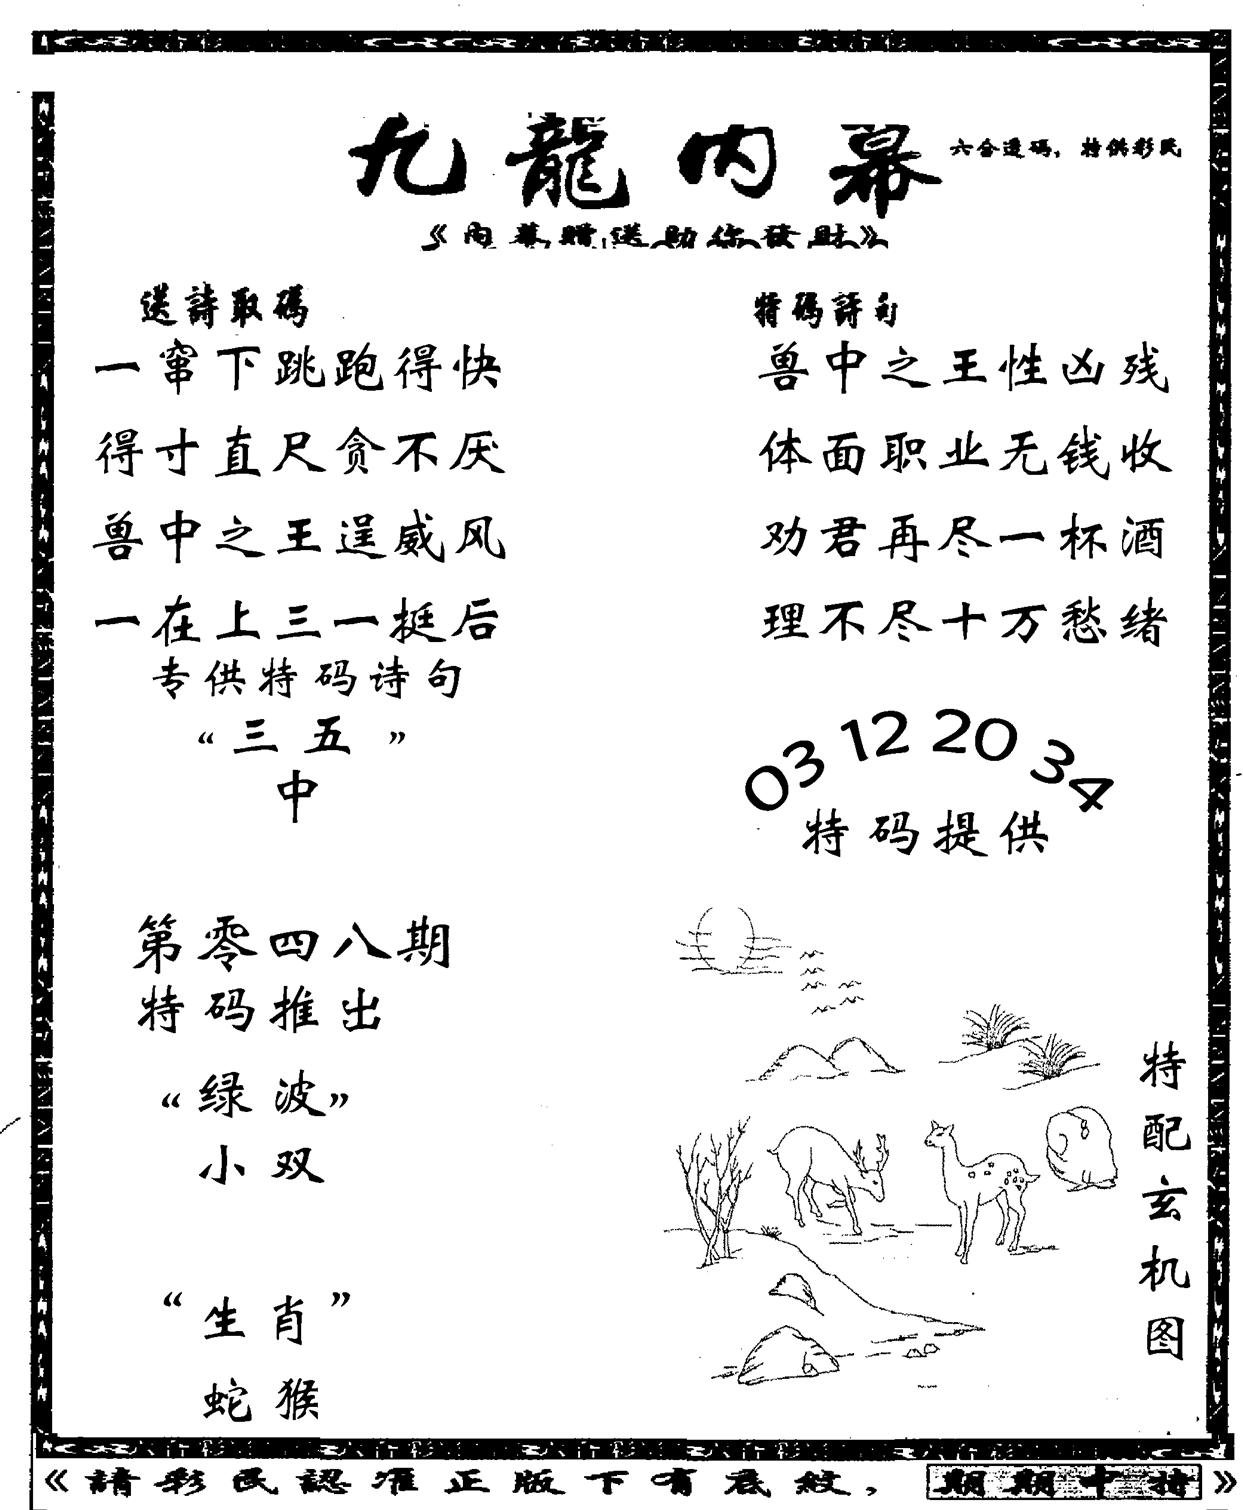 九龍內幕
六合透码，特供彩民
《內幕贈送助你發財》
送詩取碼
一窜下跳跑得快
得寸直尺贪不厌
兽中之王逞威风
一在上三一挺后
专供特码诗句
“三五”
中
特碼詩句
兽中之王性凶残
体面职业无钱收
劝君再尽一杯酒
理不尽十万愁绪
03 12 20 34
特码提供
第零四八期
特码推出
“绿波”
小双
“生肖”
蛇猴
特配玄机图
《請彩民認准正版下有底紋，期期中特》